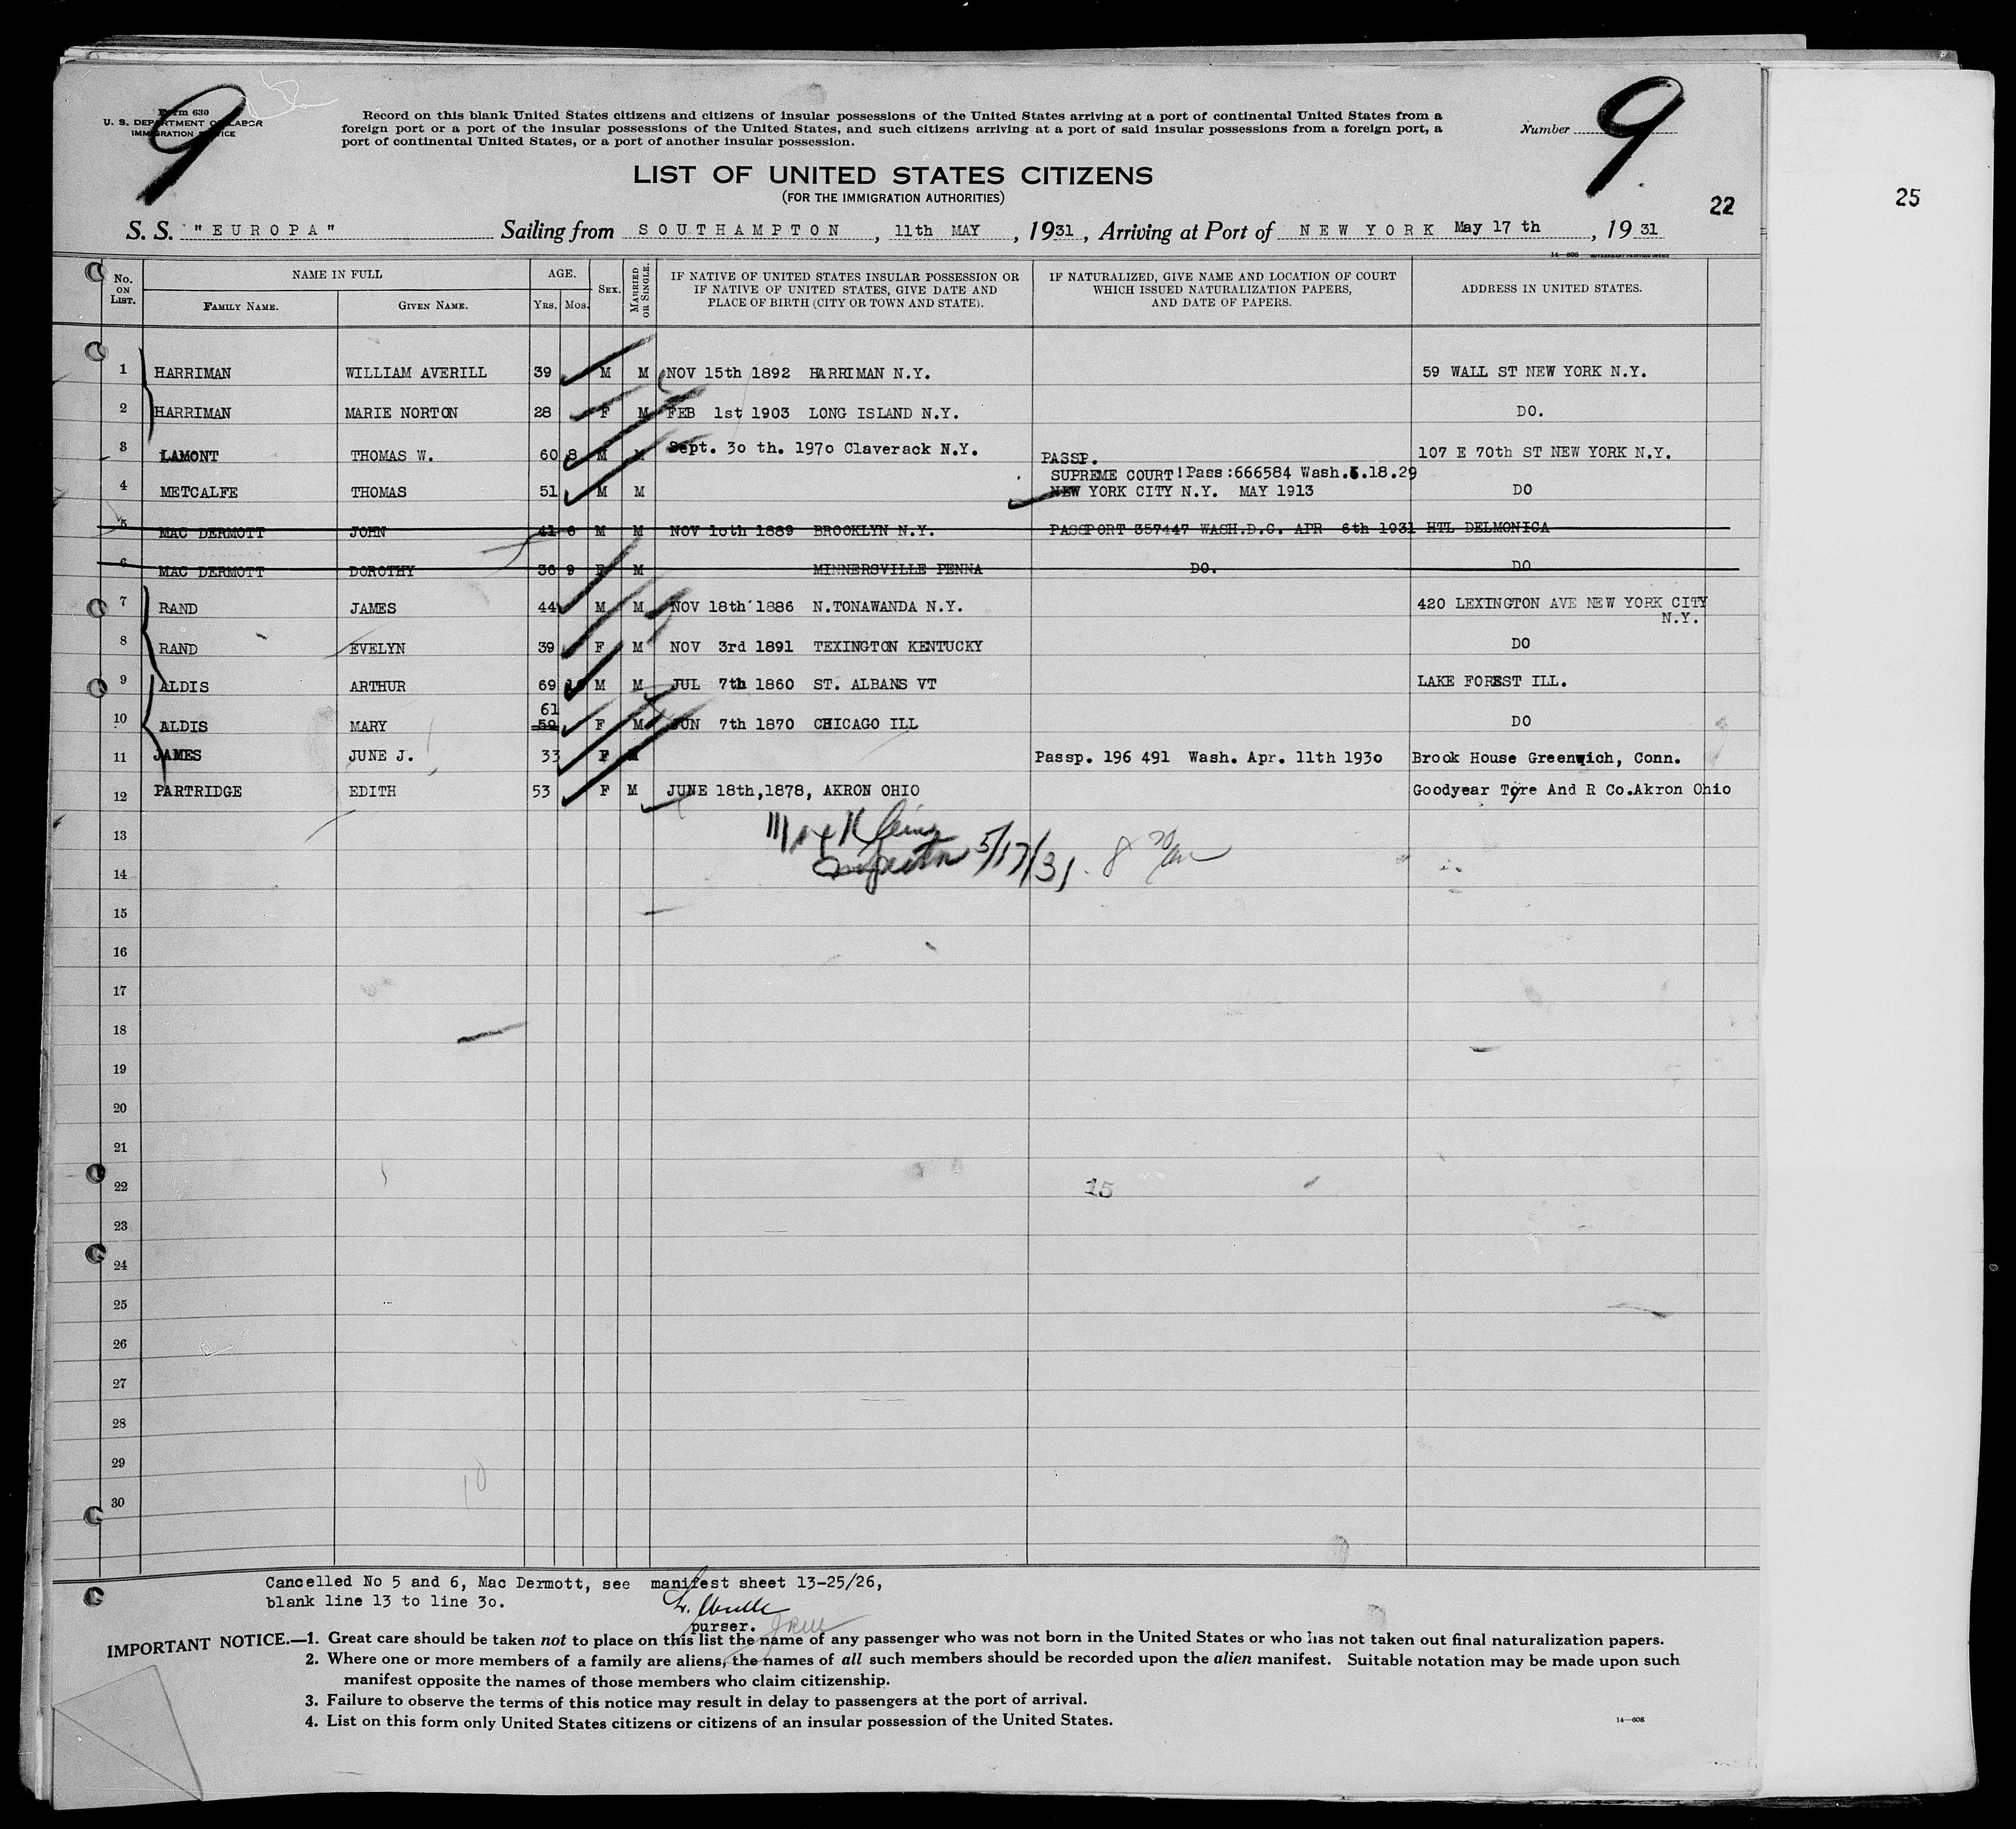 9
9
Form 630
U. S. DEPARTMENT OF LABOR
IMMIGRATION SERVICE
Record on this blank United States citizens and citizens of insular possessions of the United States arriving at a port of continental United States from a
foreign port or a port of the insular possessions of the United States, and such citizens arriving at a port of said insular possessions from a foreign port, a
port of continental United States, or a port of another insular possession.
Number
LIST OF UNITED STATES CITIZENS
(FOR THE IMMIGRATION AUTHORITIES)
22
25
S. S. "EUROPA" Sailing from SOUTHAMPTON, 11th MAY, 1931, Arriving at Port of NEW YORK May 17 th, 1931
14-608 GOVERNMENT PRINTING OFFICE
No. ON LIST. NAME IN FULL FAMILY NAME. GIVEN NAME. AGE. YRS. MOS. SEX. MARRIED OR SINGLE. IF NATIVE OF UNITED STATES INSULAR POSSESSION OR IF NATIVE OF UNITED STATES, GIVE DATE AND PLACE OF BIRTH (CITY OR TOWN AND STATE). IF NATURALIZED, GIVE NAME AND LOCATION OF COURT WHICH ISSUED NATURALIZATION PAPERS, AND DATE OF PAPERS. ADDRESS IN UNITED STATES.
1 HARRIMAN WILLIAM AVERILL 39 M M NOV 15th 1892 HARRIMAN N.Y. 59 WALL ST NEW YORK N.Y.
2 HARRIMAN MARIE NORTON 28 F M FEB 1st 1903 LONG ISLAND N.Y. DO.
3 LAMONT THOMAS W. 60 8 M M Sept. 30 th. 1970 Claverack N.Y. PASSP. 107 E 70th ST NEW YORK N.Y.
4 METCALFE THOMAS 51 M M SUPREME COURT! Pass:666584 Wash.5.18.29 NEW YORK CITY N.Y. MAY 1913 DO
5 MAC DERMOTT JOHN 41 6 M M NOV 10th 1889 BROOKLYN N.Y. PASSPORT 357447 WASH.D.C. APR 6th 1931 HTL DELMONICA
6 MAC DERMOTT DOROTHY 36 9 F M MINNERSVILLE PENNA DO. DO
7 RAND JAMES 44 M M NOV 18th 1886 N.TONAWANDA N.Y. 420 LEXINGTON AVE NEW YORK CITY
N.Y.
8 RAND EVELYN 39 F M NOV 3rd 1891 TEXINGTON KENTUCKY DO
9 ALDIS ARTHUR 69 M M JUL 7th 1860 ST. ALBANS VT LAKE FOREST ILL.
61
10 ALDIS MARY 59 F M JUN 7th 1870 CHICAGO ILL DO
11 JAMES JUNE J. 33 F M Passp. 196 491 Wash. Apr. 11th 1930 Brook House Greenwich, Conn.
12 PARTRIDGE EDITH 53 F M JUNE 18th,1878, AKRON OHIO Goodyear Tyre And R Co.Akron Ohio
13
Inspector 5/17/31
14
15
16
17
18
19
20
21
22 15
23
24
25
26
27
28
29
10
30
Cancelled No 5 and 6, Mac Dermott, see manifest sheet 13-25/26,
blank line 13 to line 30.
purser.
IMPORTANT NOTICE.—1. Great care should be taken not to place on this list the name of any passenger who was not born in the United States or who has not taken out final naturalization papers.
2. Where one or more members of a family are aliens, the names of all such members should be recorded upon the alien manifest. Suitable notation may be made upon such
manifest opposite the names of those members who claim citizenship.
3. Failure to observe the terms of this notice may result in delay to passengers at the port of arrival.
4. List on this form only United States citizens or citizens of an insular possession of the United States.
14—608